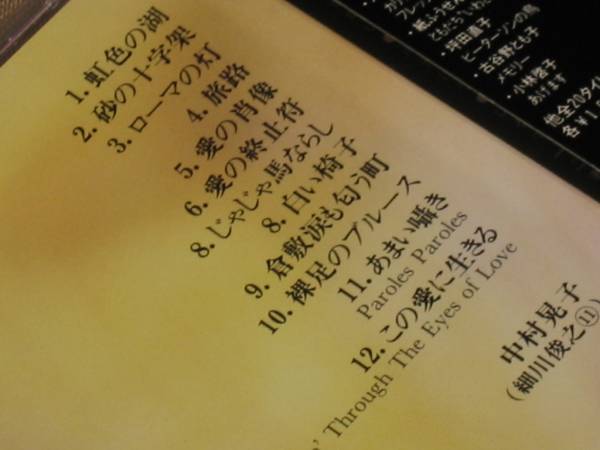 1. 虹色の湖
2. 砂の十字架
3. ローマの灯
4. 旅路
5. 愛の肖像
6. 愛の終止符
8. じゃじゃ馬ならし
8. 白い椅子
9. 倉敷涙も匂う町
10. 裸足のブルース
11. あまい囁き
Paroles Paroles
12. この愛に生きる
Through The Eyes of Love
中村晃子
(細川俊之⑪)
・坪田直子
ピーターソンの鳥
・古谷野とも子
メモリー
・小林啓子
あげます
他全20タイ